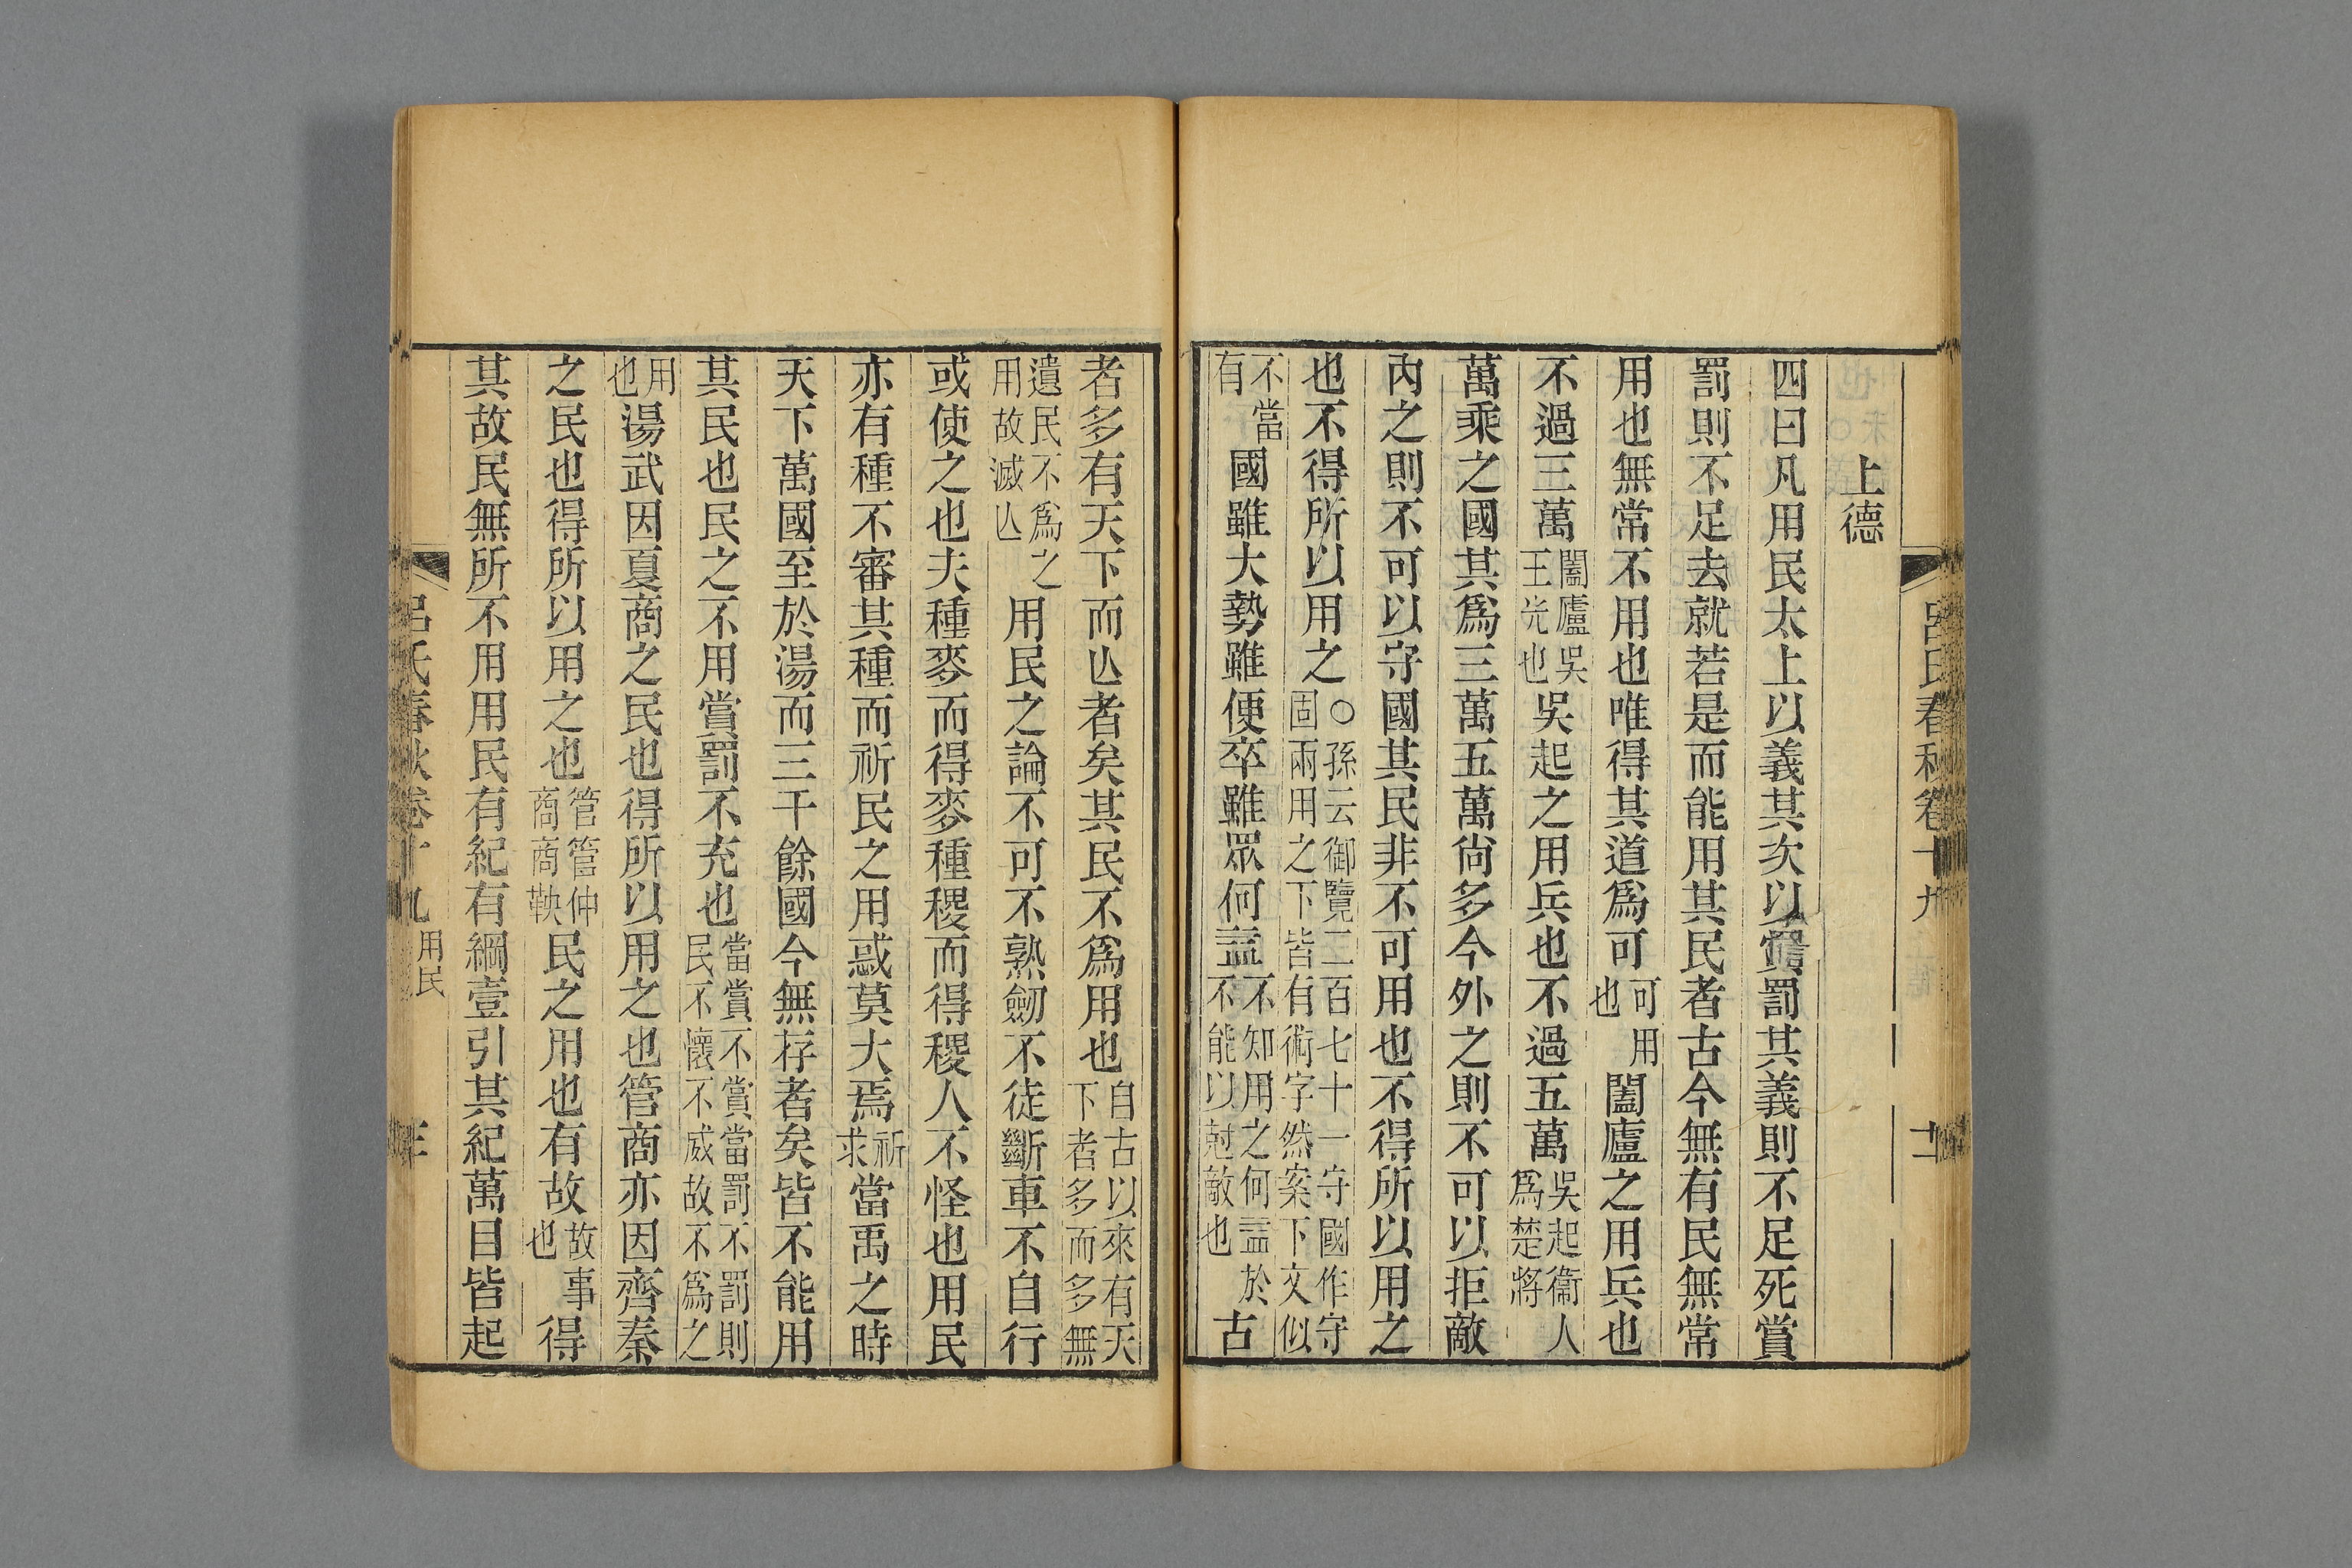 呂氏春秋卷十九
上德
四曰凡用民太上以義其次以賞罰其義則不足死賞
罰則不足去就若是而能用其民者古今無有民無常
用也無常不用也唯得其道爲可可用也闔廬之用兵也
不過三萬闔廬吳王光也吳起之用兵也不過五萬吳起衞人爲楚將
萬乘之國其爲三萬五萬尙多今外之則不可以拒敵
內之則不可以守國其民非不可用也不得所以用之
也不得所以用之○孫云御覽二百七十一守國作守固兩用之下皆有術字然案下文似
不當有國雖大勢雖便卒雖眾何益不知用之何益於不能以尅敵也古
者多有天下而亾者矣其民不爲用也自古以來有天下者多而多無
遺民不爲之用故滅亾用民之論不可不熟劒不徒斷車不自行
或使之也夫種麥而得麥種稷而得稷人不怪也用民
亦有種不審其種而祈民之用惑莫大焉祈求當禹之時
天下萬國至於湯而三千餘國今無存者矣皆不能用
其民也民之不用賞罰不充也當賞不賞當罰不罰則民不懷不威故不爲之
用也湯武因夏商之民也得所以用之也管商亦因齊秦
之民也得所以用之也管管仲商商鞅民之用也有故故事也得
其故民無所不用用民有紀有綱壹引其紀萬目皆起
呂氏春秋卷十九 用民